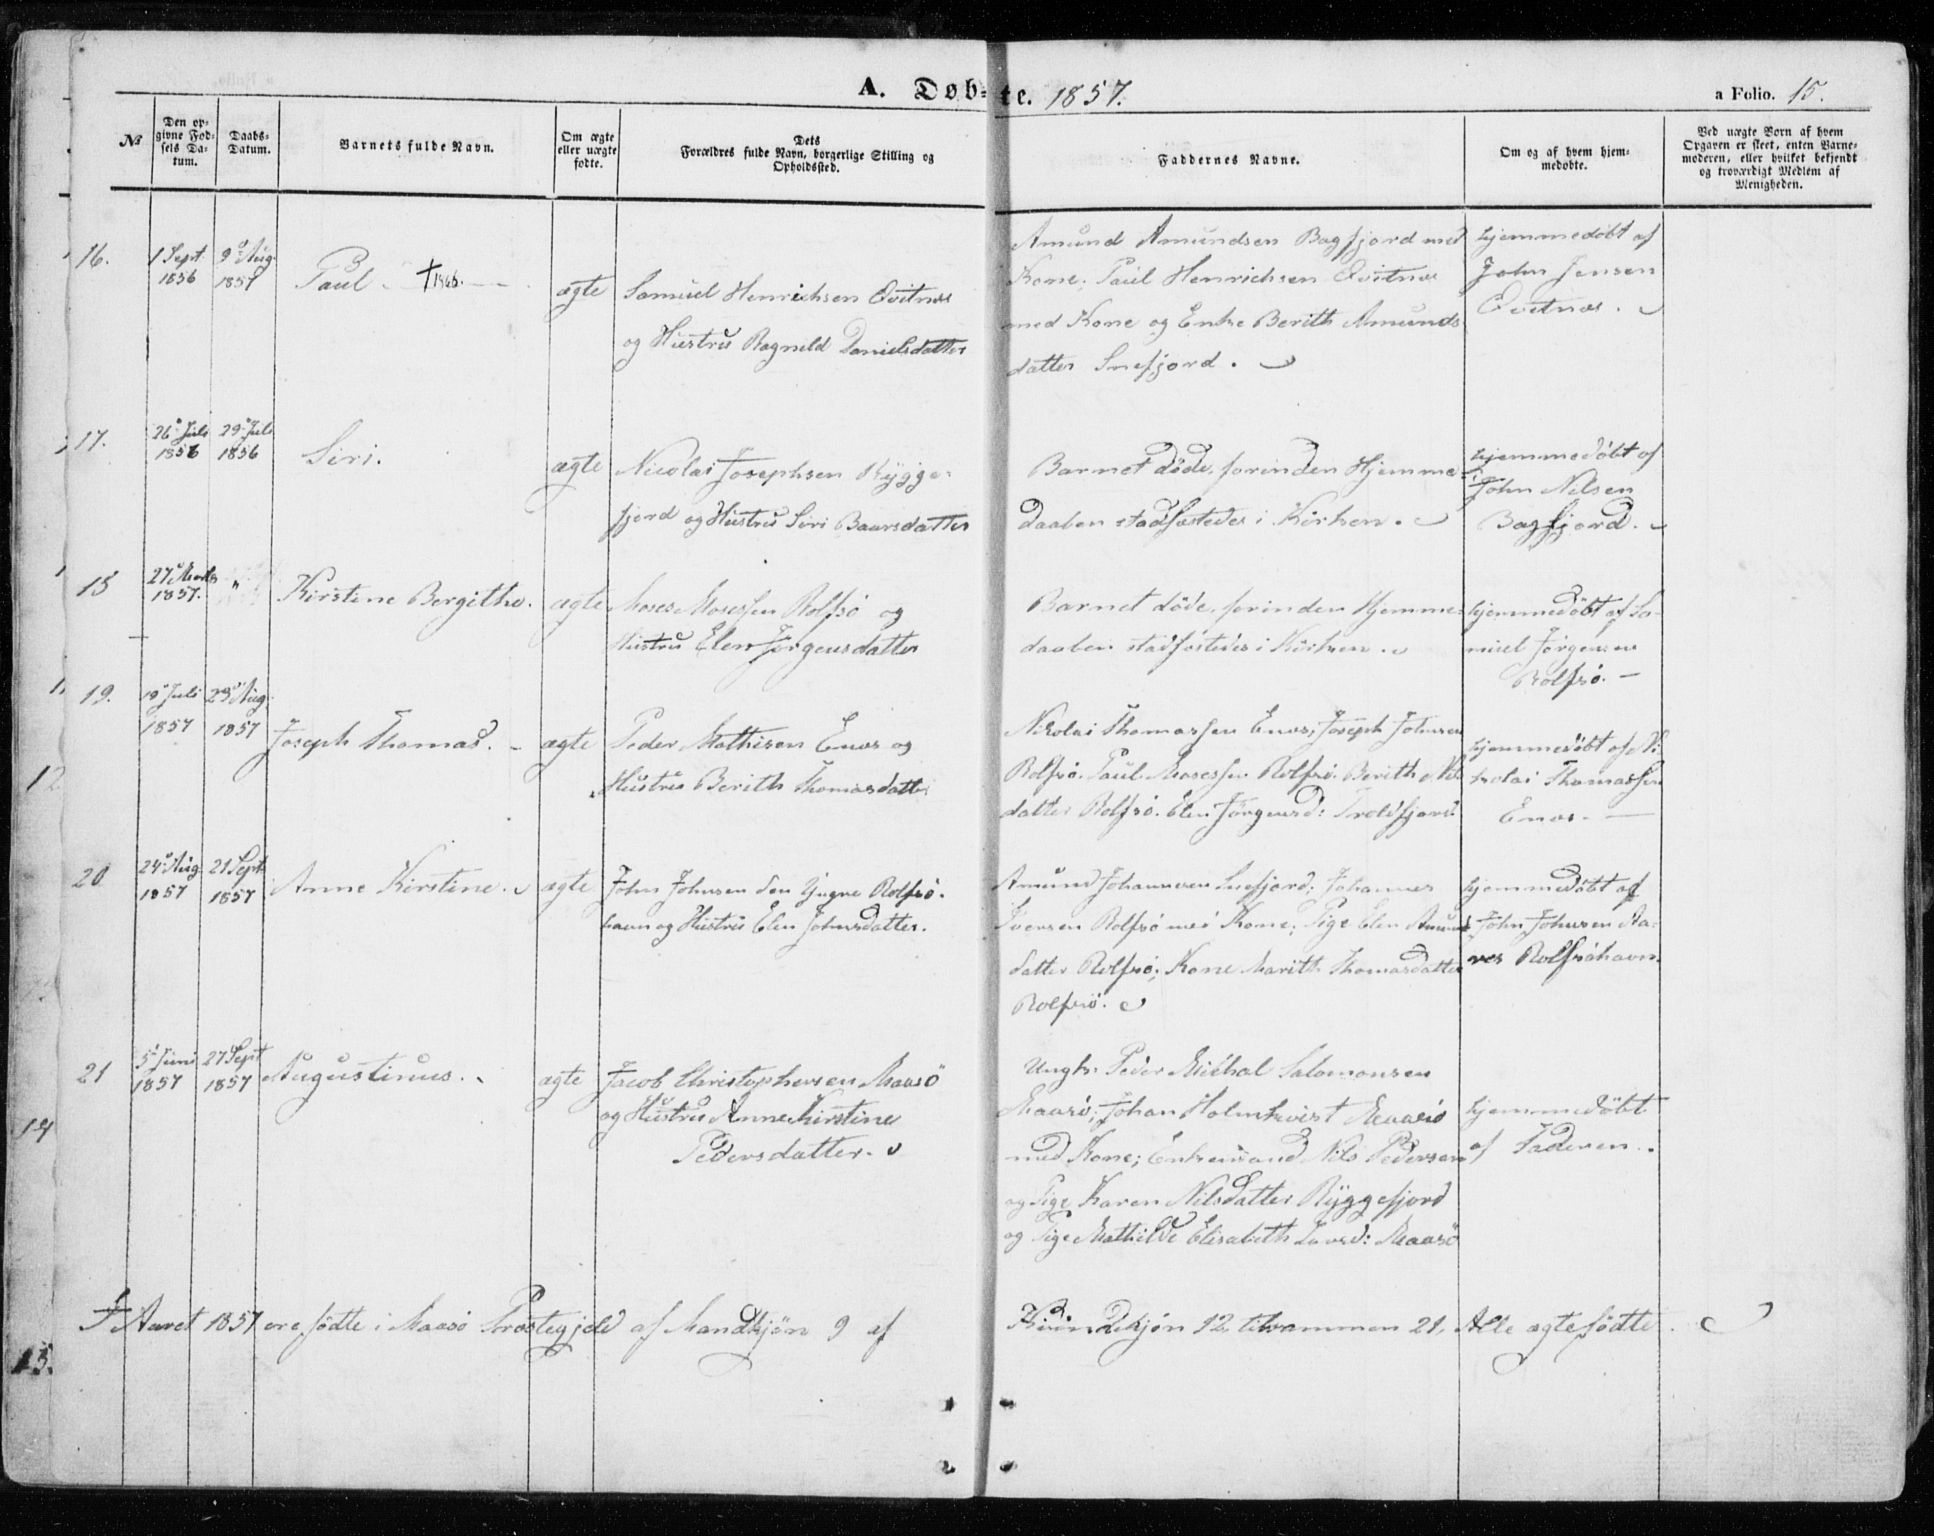 A. Døbte. 1857.
a Folio. 15.
No
Den opgivne Fødsels Datum.
Daabs-Datum.
Barnets fulde Navn.
Om ægte eller uægte fødte.
Dets Forældres fulde Navn, borgerlige Stilling og Opholdssted.
Faddernes Navne.
Om og af hvem hjemmedøbte.
Ved uægte Børn af hvem Opgaven er skeet, enten Barnemoderen, eller hvilket bekjendt og troværdigt Medlem af Menigheden.
16.
1 Sept 1856
9 Aug. 1857
Paul.
ægte
Samuel Henrichsen Qvitnæs
og Hustru Ragnild Danielsdatter
Amund Amundsen Bagfjord med
Kone; Paul Henrichsen Qvitnæs
med Kone og Enke Berith Amunds
datter Snefjord.
hjemmedøbt af
John Jensen
Qvitnæs.
17.
26 Juli 1856
29 Juli 1856
Siri.
ægte
Nicolai Josephsen Rygge-
fjord og Hustru Siri Baarsdatter
Barnet døde forinden Hjemme-
daaben stadfæstedes i Kirken.
hjemmedøbt af
John Nilsen
Bagfjord.
18
27 Marts 1857.
"
Kirstine Bergithe.
ægte
Moses Mosessen Rolfsø og
Hustru Elen Jørgensdatter
Barnet døde forinden Hjemme-
daaben stadfæstedes i Kirken.
hjemmedøbt af Sa-
muel Jørgensen
Rolfsø.
19.
19 Juli 1857
23 Aug. 1857
Joseph Thomas.
ægte
Peder Mathisen Enæs og
Hustru Berith Thomasdatter
Nikolai Thomassen Enæs; Joseph Johnsen
Rolfsø. Paul Mosessen Rolfsø. Berith Nils
datter Rolfsø. Elen Jørgensd: Troldfjord.
hjemmedøbt af Ni-
kolai Thomassen
Enæs.
20
24 Aug 1857
21 Sept 1857
Anne Kirstine.
ægte
John Johnsen den Yngre Rolfsø-
havn og Hustru Elen Johnsdatter.
Amund Johannesen Snefjord; Johannes
Iversen Rolfsø med Kone; Pige Elen Amunds
datter Rolfsø; Kone Marith Thomasdatter
Rolfsø.
hjemmedøbt af
John Johnsen
Rolfsøhavn.
21
5 Juni 1857
27 Sept 1857
Augustinus.
ægte
Jacob Christophersen Maasö
og Hustru Anne Kirstine
Pedersdatter.
Ungk: Peder Michal Salomonsen
Maasø; Johan Holmkvist Maasø
med Kone; Enkemand Nils Pedersen
og Pige Karen Nilsdatter Ryggefjord
og Pige Mathilde Elisabeth Larsd: Maasö
hjemmedøbt
af Faderen.
I Aaret 1857 ere fødte i Maasø Præstegjeld af Mandkjøn 9 af Kvindekjøn 12, tilsammen 21, Alle ægtefødte.
12
14
15.